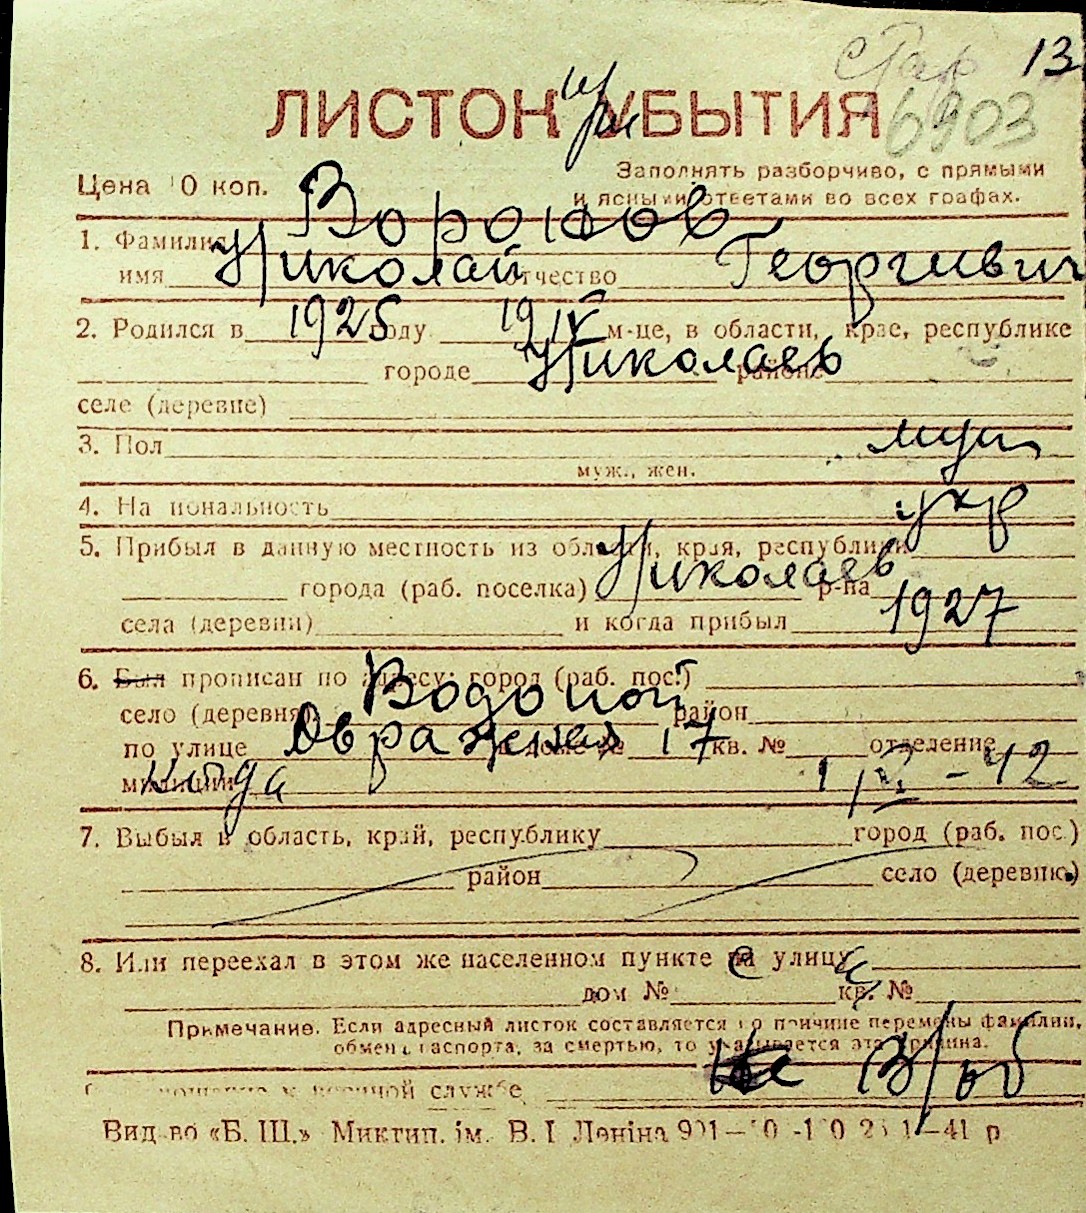 стар 13
6903
ЛИСТОК при УБЫТИЯ
Заполнять разборчиво, с прямыми
Цена 10 коп.
и ясными ответами во всех графах.
1. Фамилия Воронов
имя Николай отчество Георгиевич
2. Родился в 1925 году 19 IV м-це, в области, крае, республике
городе Николаев районе
селе (деревне)
3. Пол муж
муж., жен.
4. Национальность укр
5. Прибыл в данную местность из области, края, республики
города (раб. поселка) Николаев р-на
села (деревни) и когда прибыл 1927
6. Был прописан по адресу: город (раб. пос.)
село (деревня) Водопой район
по улице Овражная в доме № 17 кв. № отделение
милиции когда 1/IV-42
7. Выбыл в область, край, республику город (раб. пос.)
район село (деревню)
8. Или переехал в этом же населенном пункте на улицу
дом № кв. №
Примечание. Если адресный листок составляется по причине перемены фамилии,
обмена паспорта, за смертью, то указывается эта причина.
военной службе не в/об
Вид-во «Б. Ш.» Миктип. ім. В. І Леніна